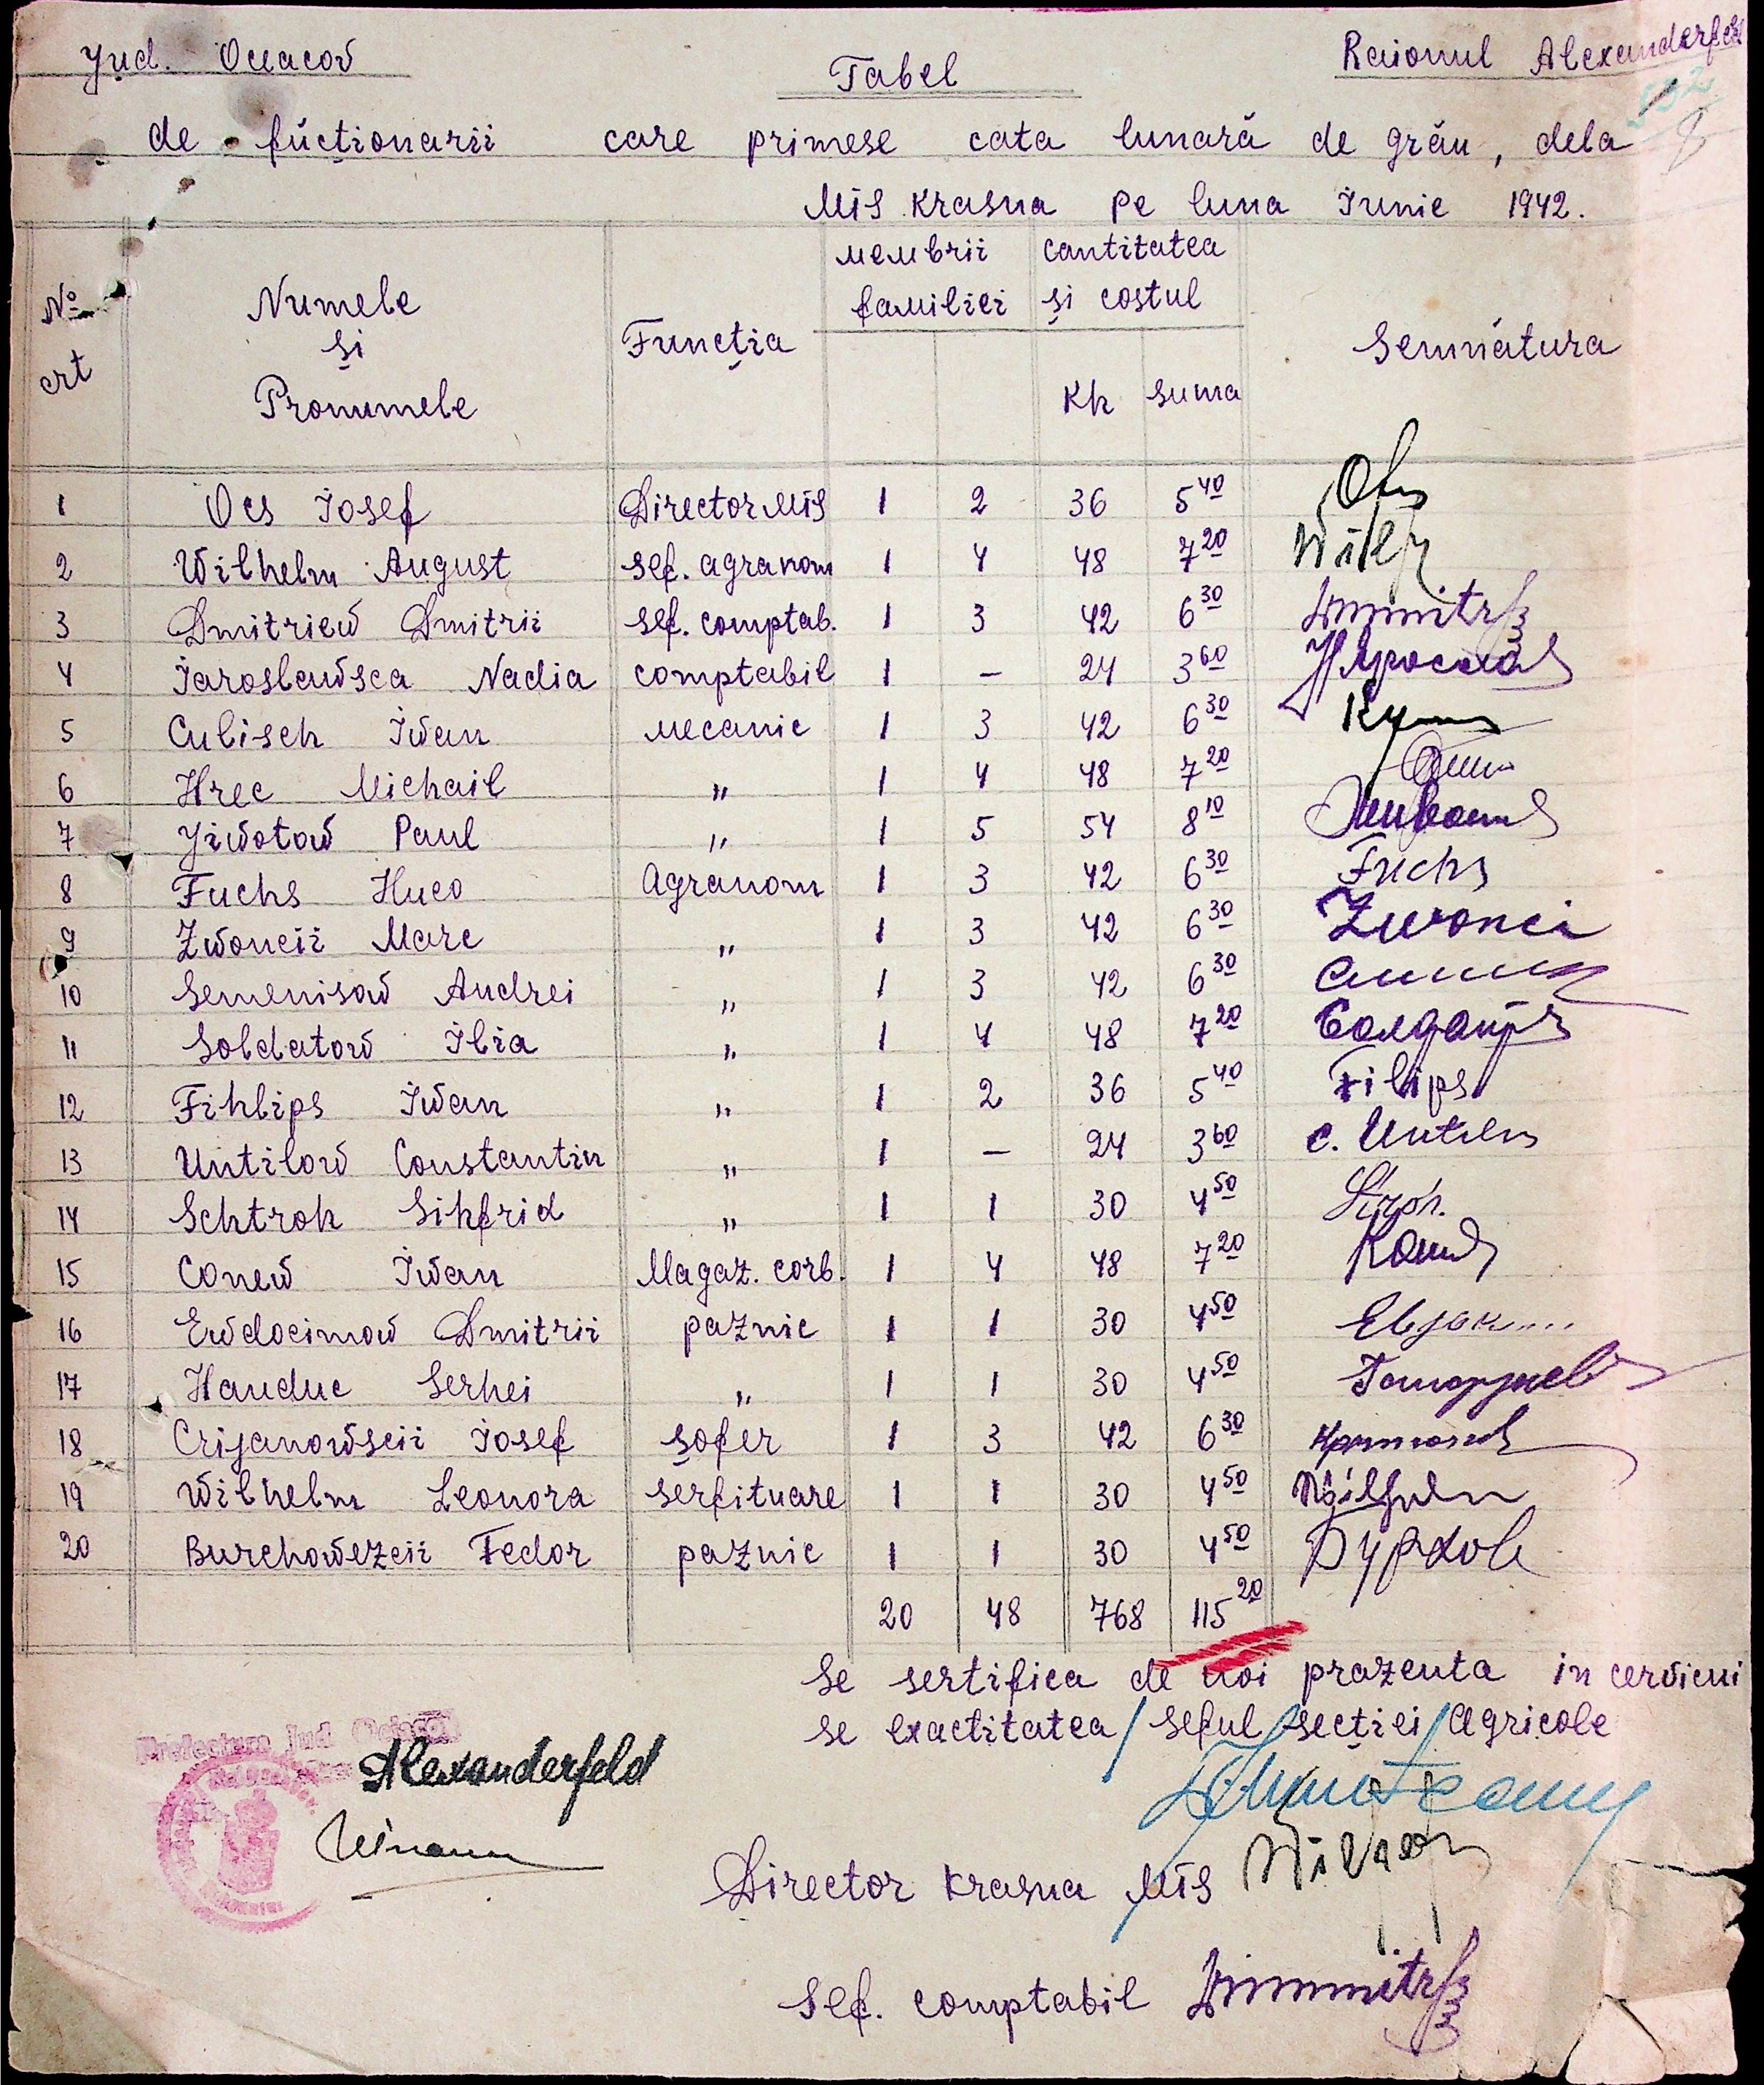 Jud. Oceacov
Raionul Alexanderfeld
Tabel
de fucționarii care primesc cata lunară de grău, dela
MTS Krasna pe luna Iunie 1942.
№ crt
Numele și Pronumele
Funcția
membrii familiei
cantitatea și costul
Kh suma
Semnătura
1 Ocs Iosef Director MTS 1 2 36 5 40
2 Wilhelm August sef. agranom 1 4 48 7 20
3 Dmitriew Dmitrii sef. comptab. 1 3 42 6 30
4 Iaroslawsca Nadia comptabil 1 — 24 3 60
5 Culisch Iwan mecanic 1 3 42 6 30
6 Hrec Michail " 1 4 48 7 20
7 Jiwotow Paul " 1 5 54 8 10
8 Fuchs Huco Agranom 1 3 42 6 30 Fuchs
9 Zwoncii Marc " 1 3 42 6 30 Zwonci
10 Semenisow Andrei " 1 3 42 6 30
11 Soldatow Ilia " 1 4 48 7 20
12 Fihlips Iwan " 1 2 36 5 40 Filips
13 Untilow Constantin " 1 — 24 3 60 C. Untilov
14 Schtroh Sihfrid " 1 1 30 4 50
15 Conew Iwan Magaz. corb. 1 4 48 7 20
16 Ewdocimow Dmitrii paznic 1 1 30 4 50
17 Handuc Serhei " 1 1 30 4 50
18 Crijanowscii Iosef șofer 1 3 42 6 30
19 Wilhelm Leonora serfituare 1 1 30 4 50
20 Burchowezcii Fedor paznic 1 1 30 4 50
20 48 768 115 20
Se sertifica de noi prazenta in cervicui
se exactitatea / Seful secției Agricole
Prefectura jud Oceacov
Alexanderfeld
Director Krasna MTS
Sef. comptabil